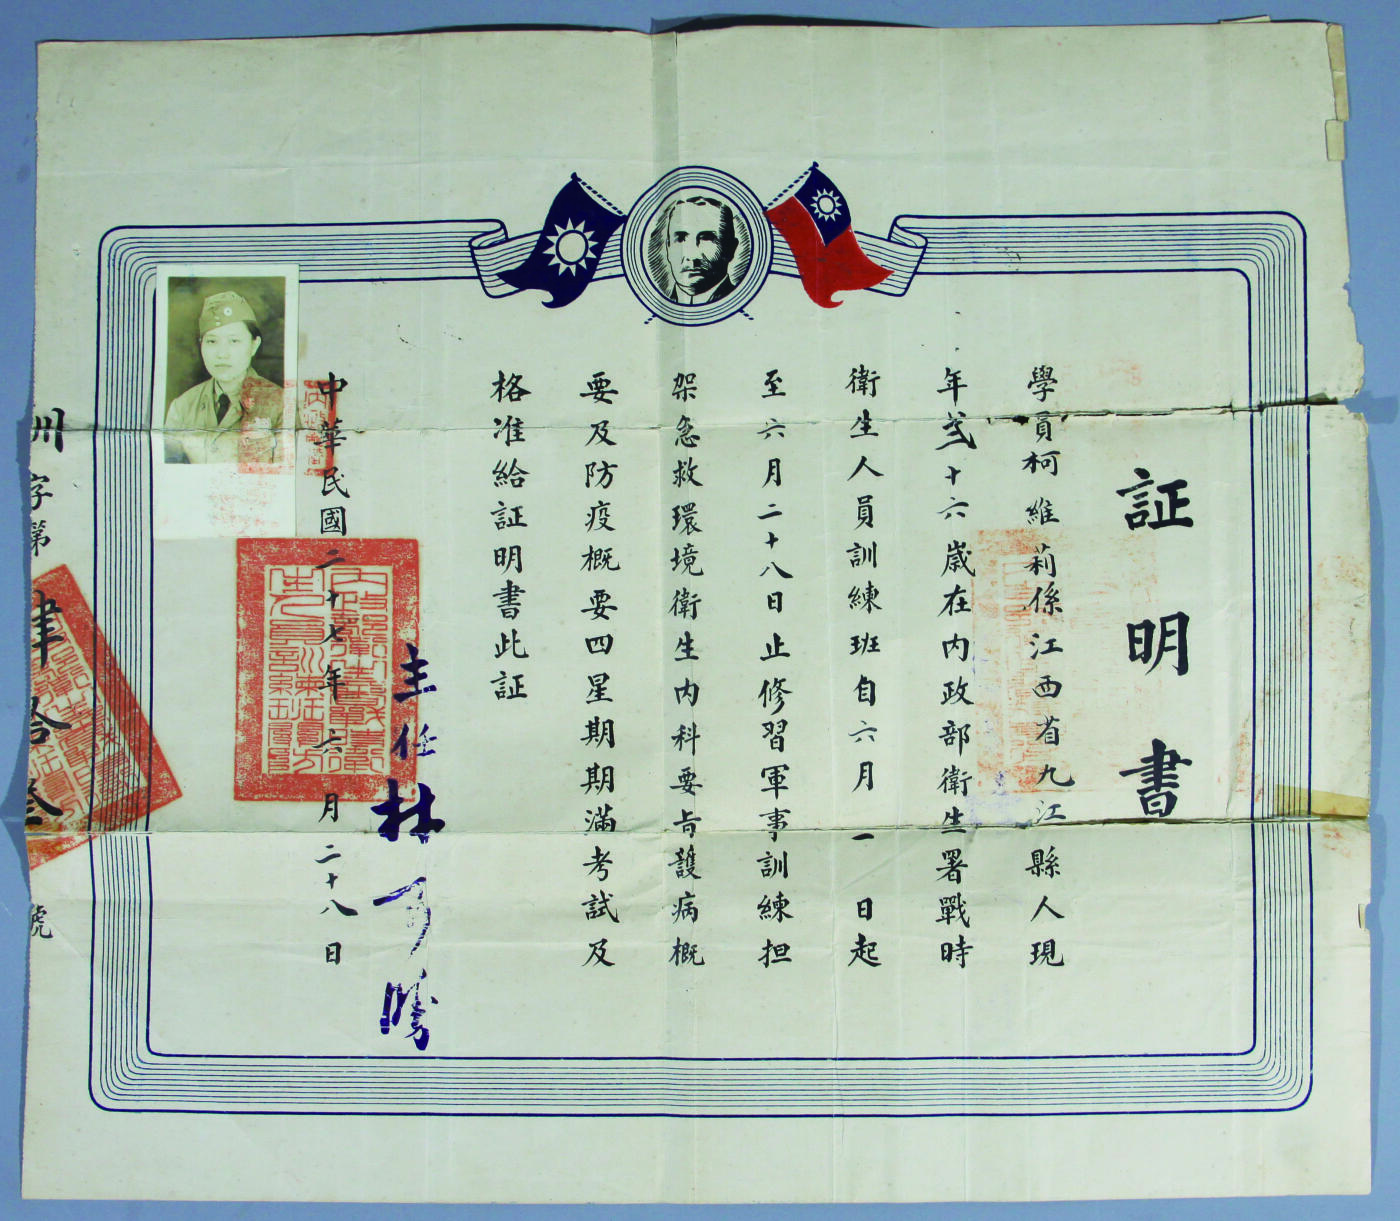 証明書
學員柯維莉係江西省九江縣人現
年弍十六歲在內政部衛生署戰時
衛生人員訓練班自六月一日起
至六月二十八日止修習軍事訓練担
架急救環境衛生內科要旨護病概
要及防疫概要四星期期滿考試及
格准給証明書此証
主任
中華民國二十七年六月二十八日
字第肆拾叁號